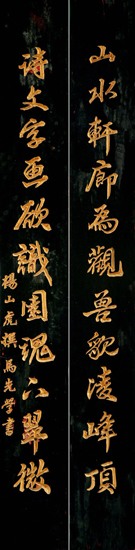 山水軒廊為觀兽貌凌峰頂
詩文字画欲識園魂下翠微
楊山虎撰馬光學書